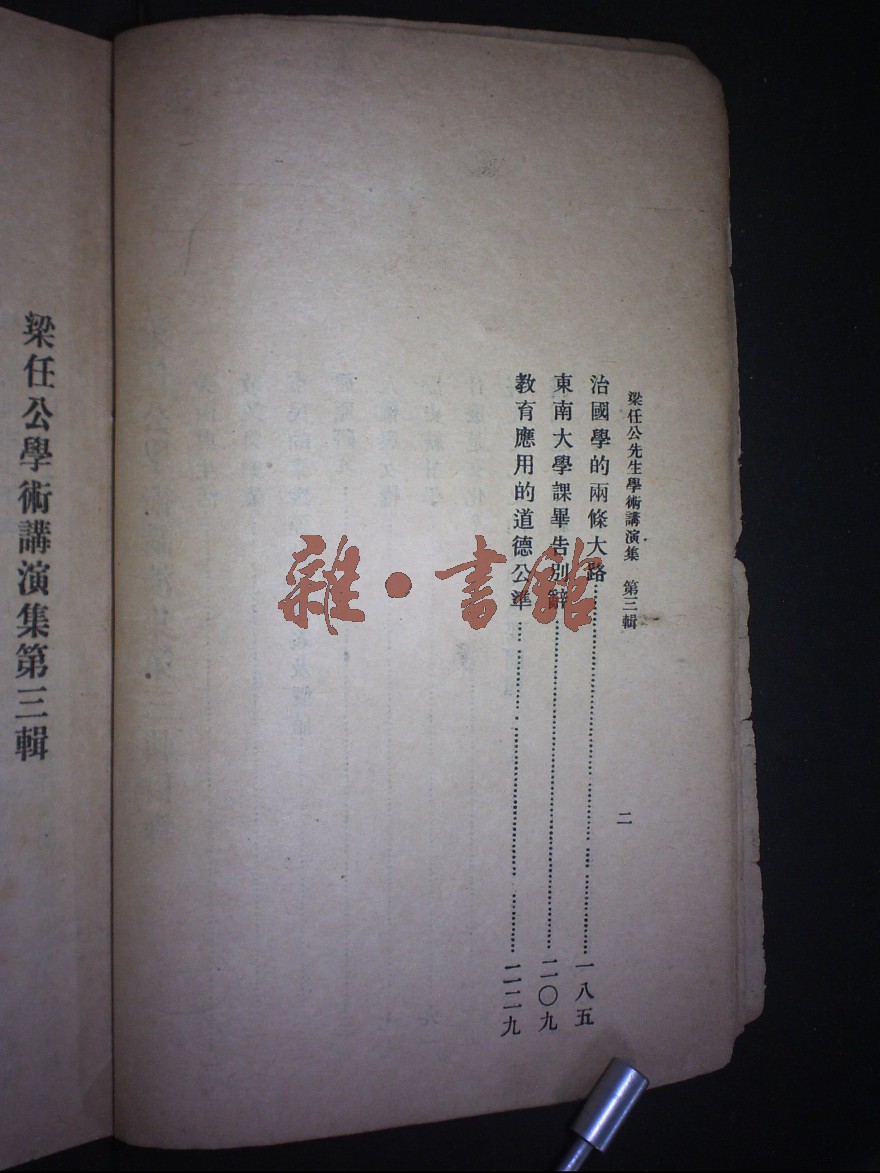 梁任公先生學術講演集 第三輯
二
治國學的兩條大路……一八五
東南大學課畢告別辭……二〇九
教育應用的道德公準……二二九
梁任公學術講演集第三輯
雜·書館